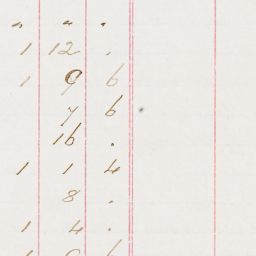 " " .
1 12 .
1 9 6
7 6
16 .
1 1 4
8 .
1 4 .